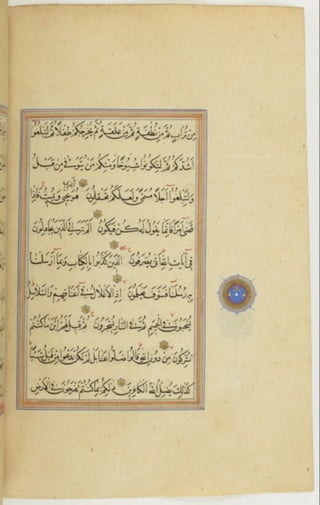 من تراب ثم من نطفة ثم من علقة ثم يخرجكم طفلا ثم لتبلغوا
أشدكم ثم لتكونوا شيوخا ومنكم من يتوفى من قبل
ولتبلغوا أجلا مسمى ولعلكم تعقلون هو يحيي ويميت فإذا
قضى أمرا فإنما يقول له كن فيكون ألم تر إلى الذين يجادلون
في آيات الله أنى يصرفون الذين كذبوا بالكتاب وبما أرسلنا
به رسلنا فسوف يعلمون إذ الأغلال في أعناقهم والسلاسل
يسحبون في الحميم ثم في النار يسجرون ثم قيل لهم أين ما كنتم
تشركون من دون الله قالوا ضلوا عنا بل لم نكن ندعو من قبل شيئا
كذلك يضل الله الكافرين ذلكم بما كنتم تفرحون في الأرض